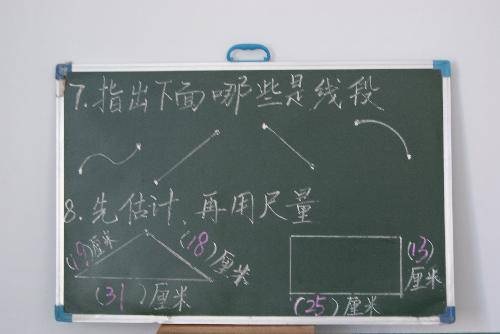 7.指出下面哪些是线段
8.先估计、再用尺量
(19)厘米
(18)厘米
(31)厘米
(13)厘米
(25)厘米